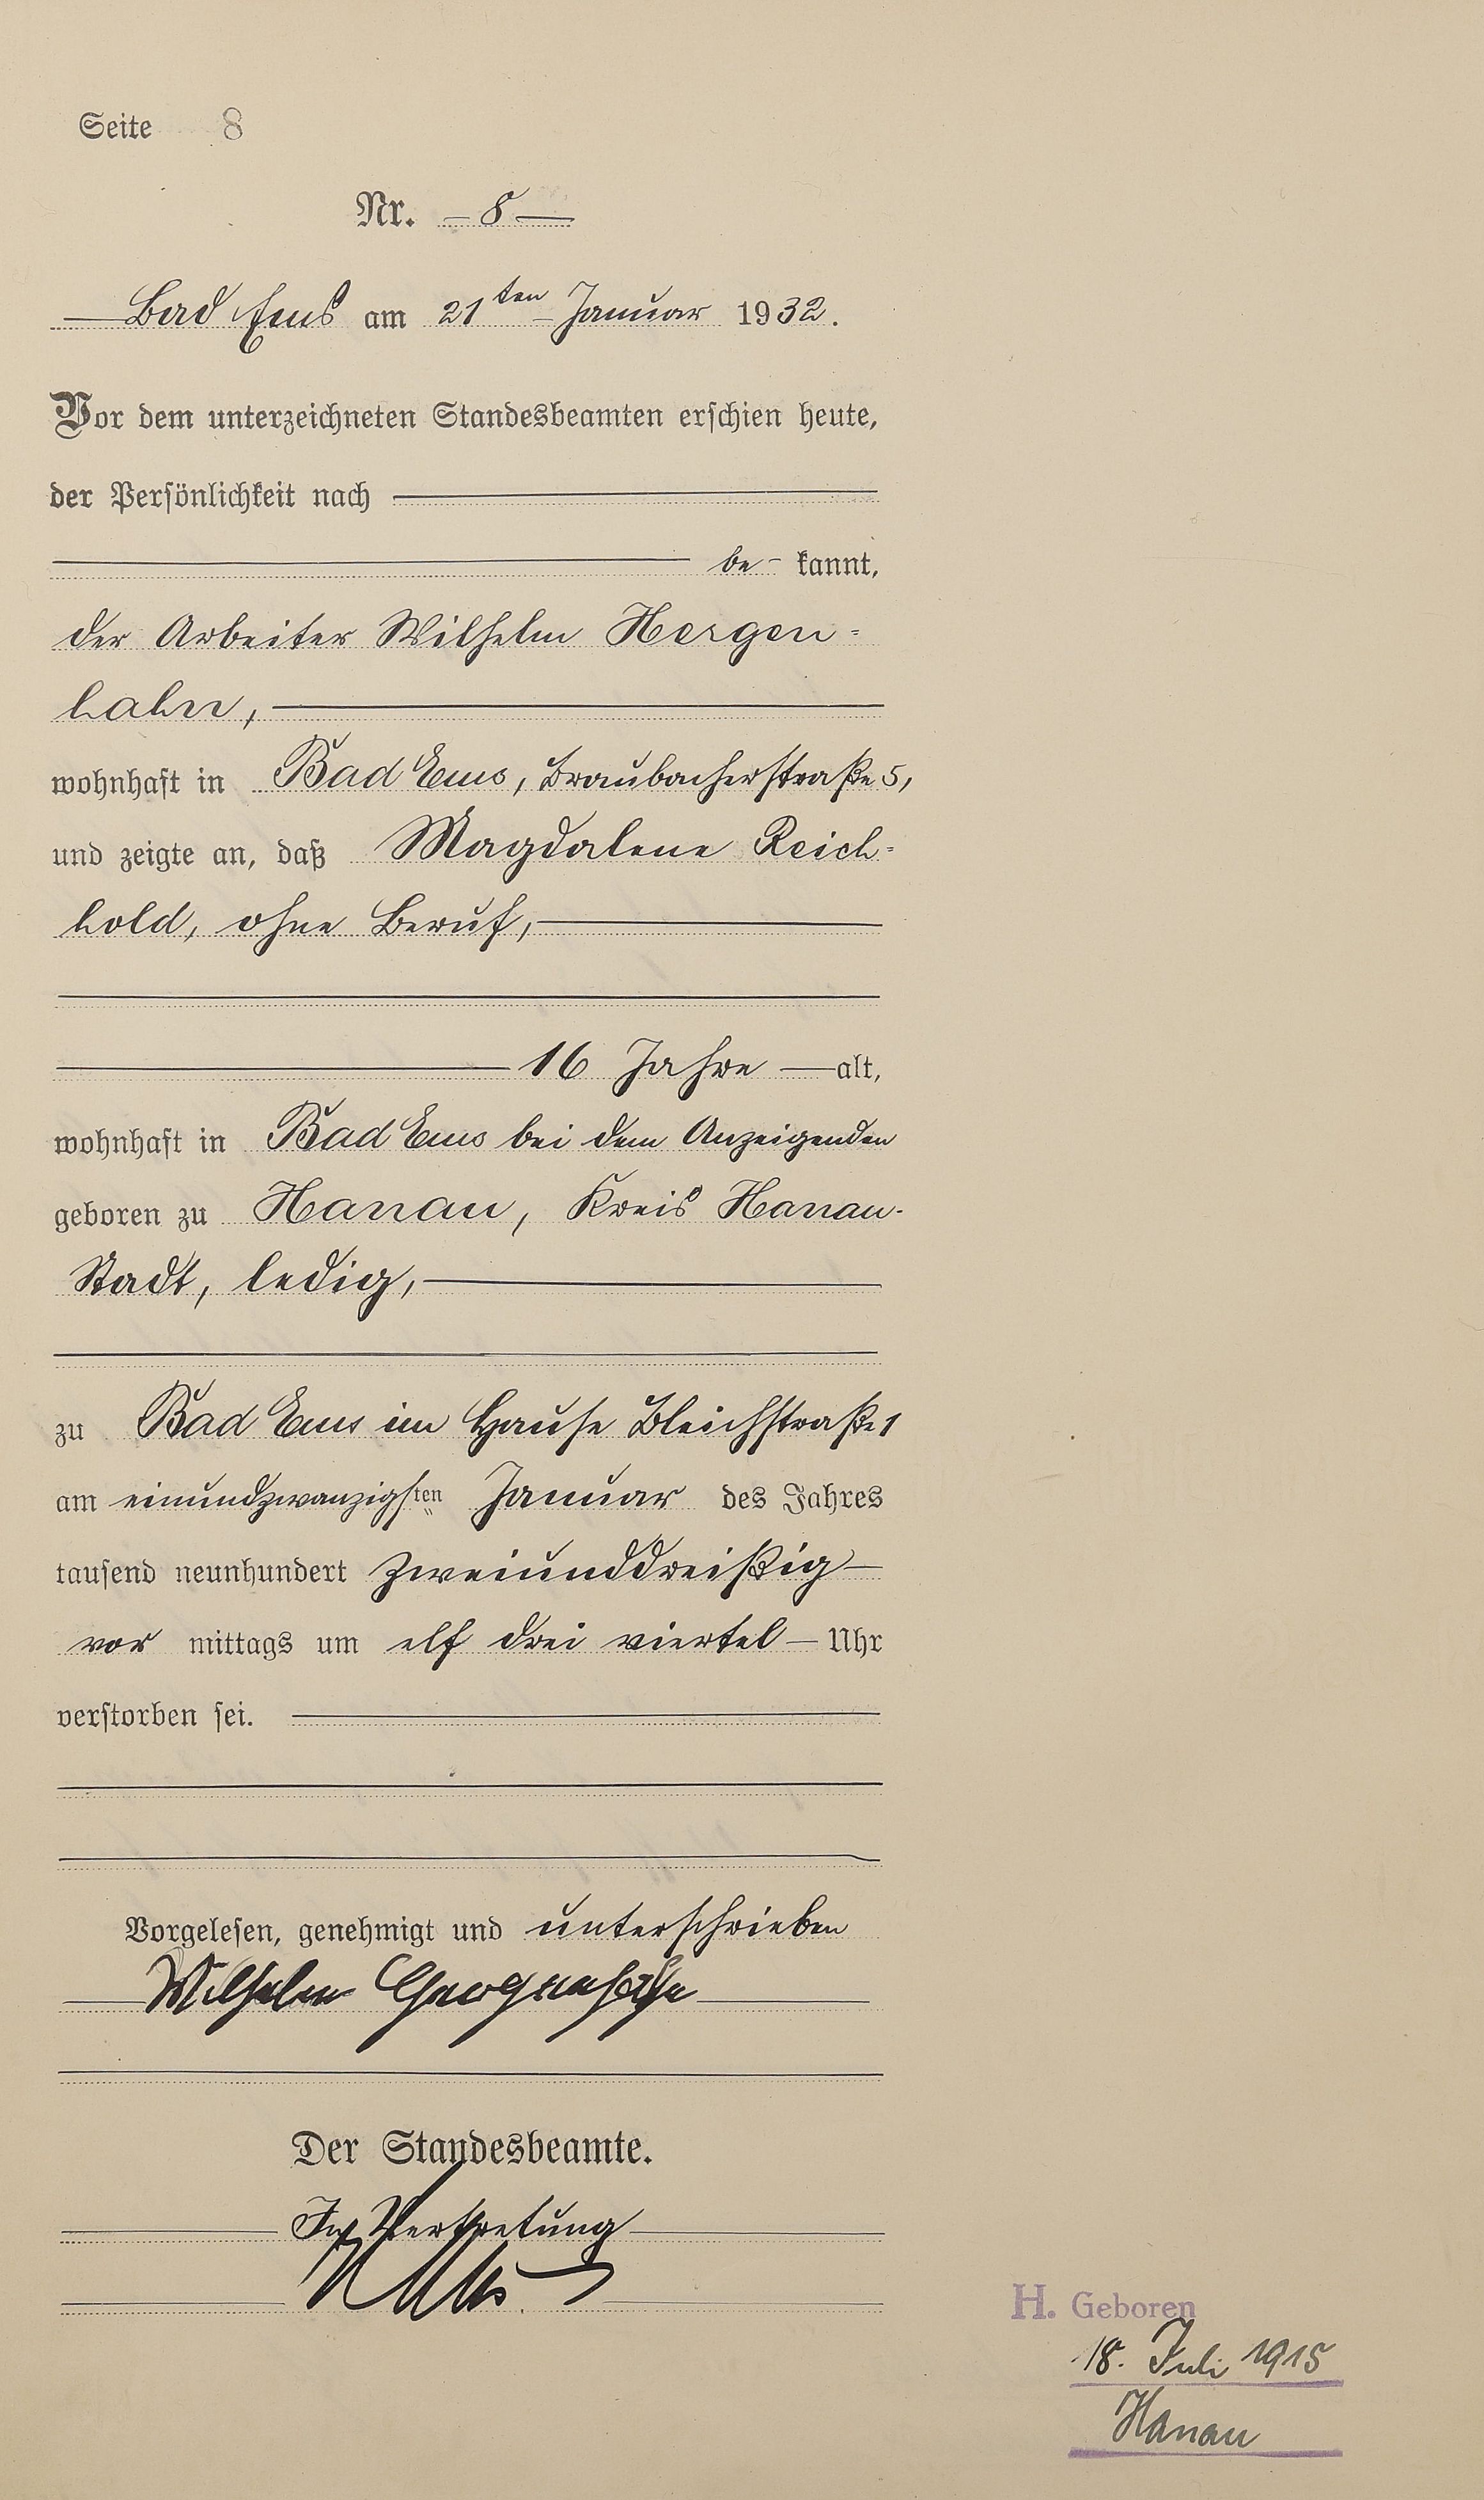 Seite 8
Nr. 8
Bad Ems am 21ten Januar 1932.
Vor dem unterzeichneten Standesbeamten erschien heute,
der Persönlichkeit nach
be- kannt,
der Arbeiter Wilhelm Hergen=
hahn,
wohnhaft in Bad Ems, Braubacherstraße 5,
und zeigte an, daß Magdalene Reich=
hold, ohne Beruf,
16 Jahre alt,
wohnhaft in Bad Ems bei dem Anzeigenden
geboren zu Hanau, Kreis Hanau-
Stadt, ledig,
zu Bad Ems im Hause Bleichstraße 1
am einundzwanzigsten Januar des Jahres
tausend neunhundert zweiunddreißig
vor mittags um elf drei viertel Uhr
verstorben sei.
Vorgelesen, genehmigt und unterschrieben
Wilhelm Hergenhahn
Der Standesbeamte.
In Vertretung
H. Geboren
18. Juli 1915
Hanau